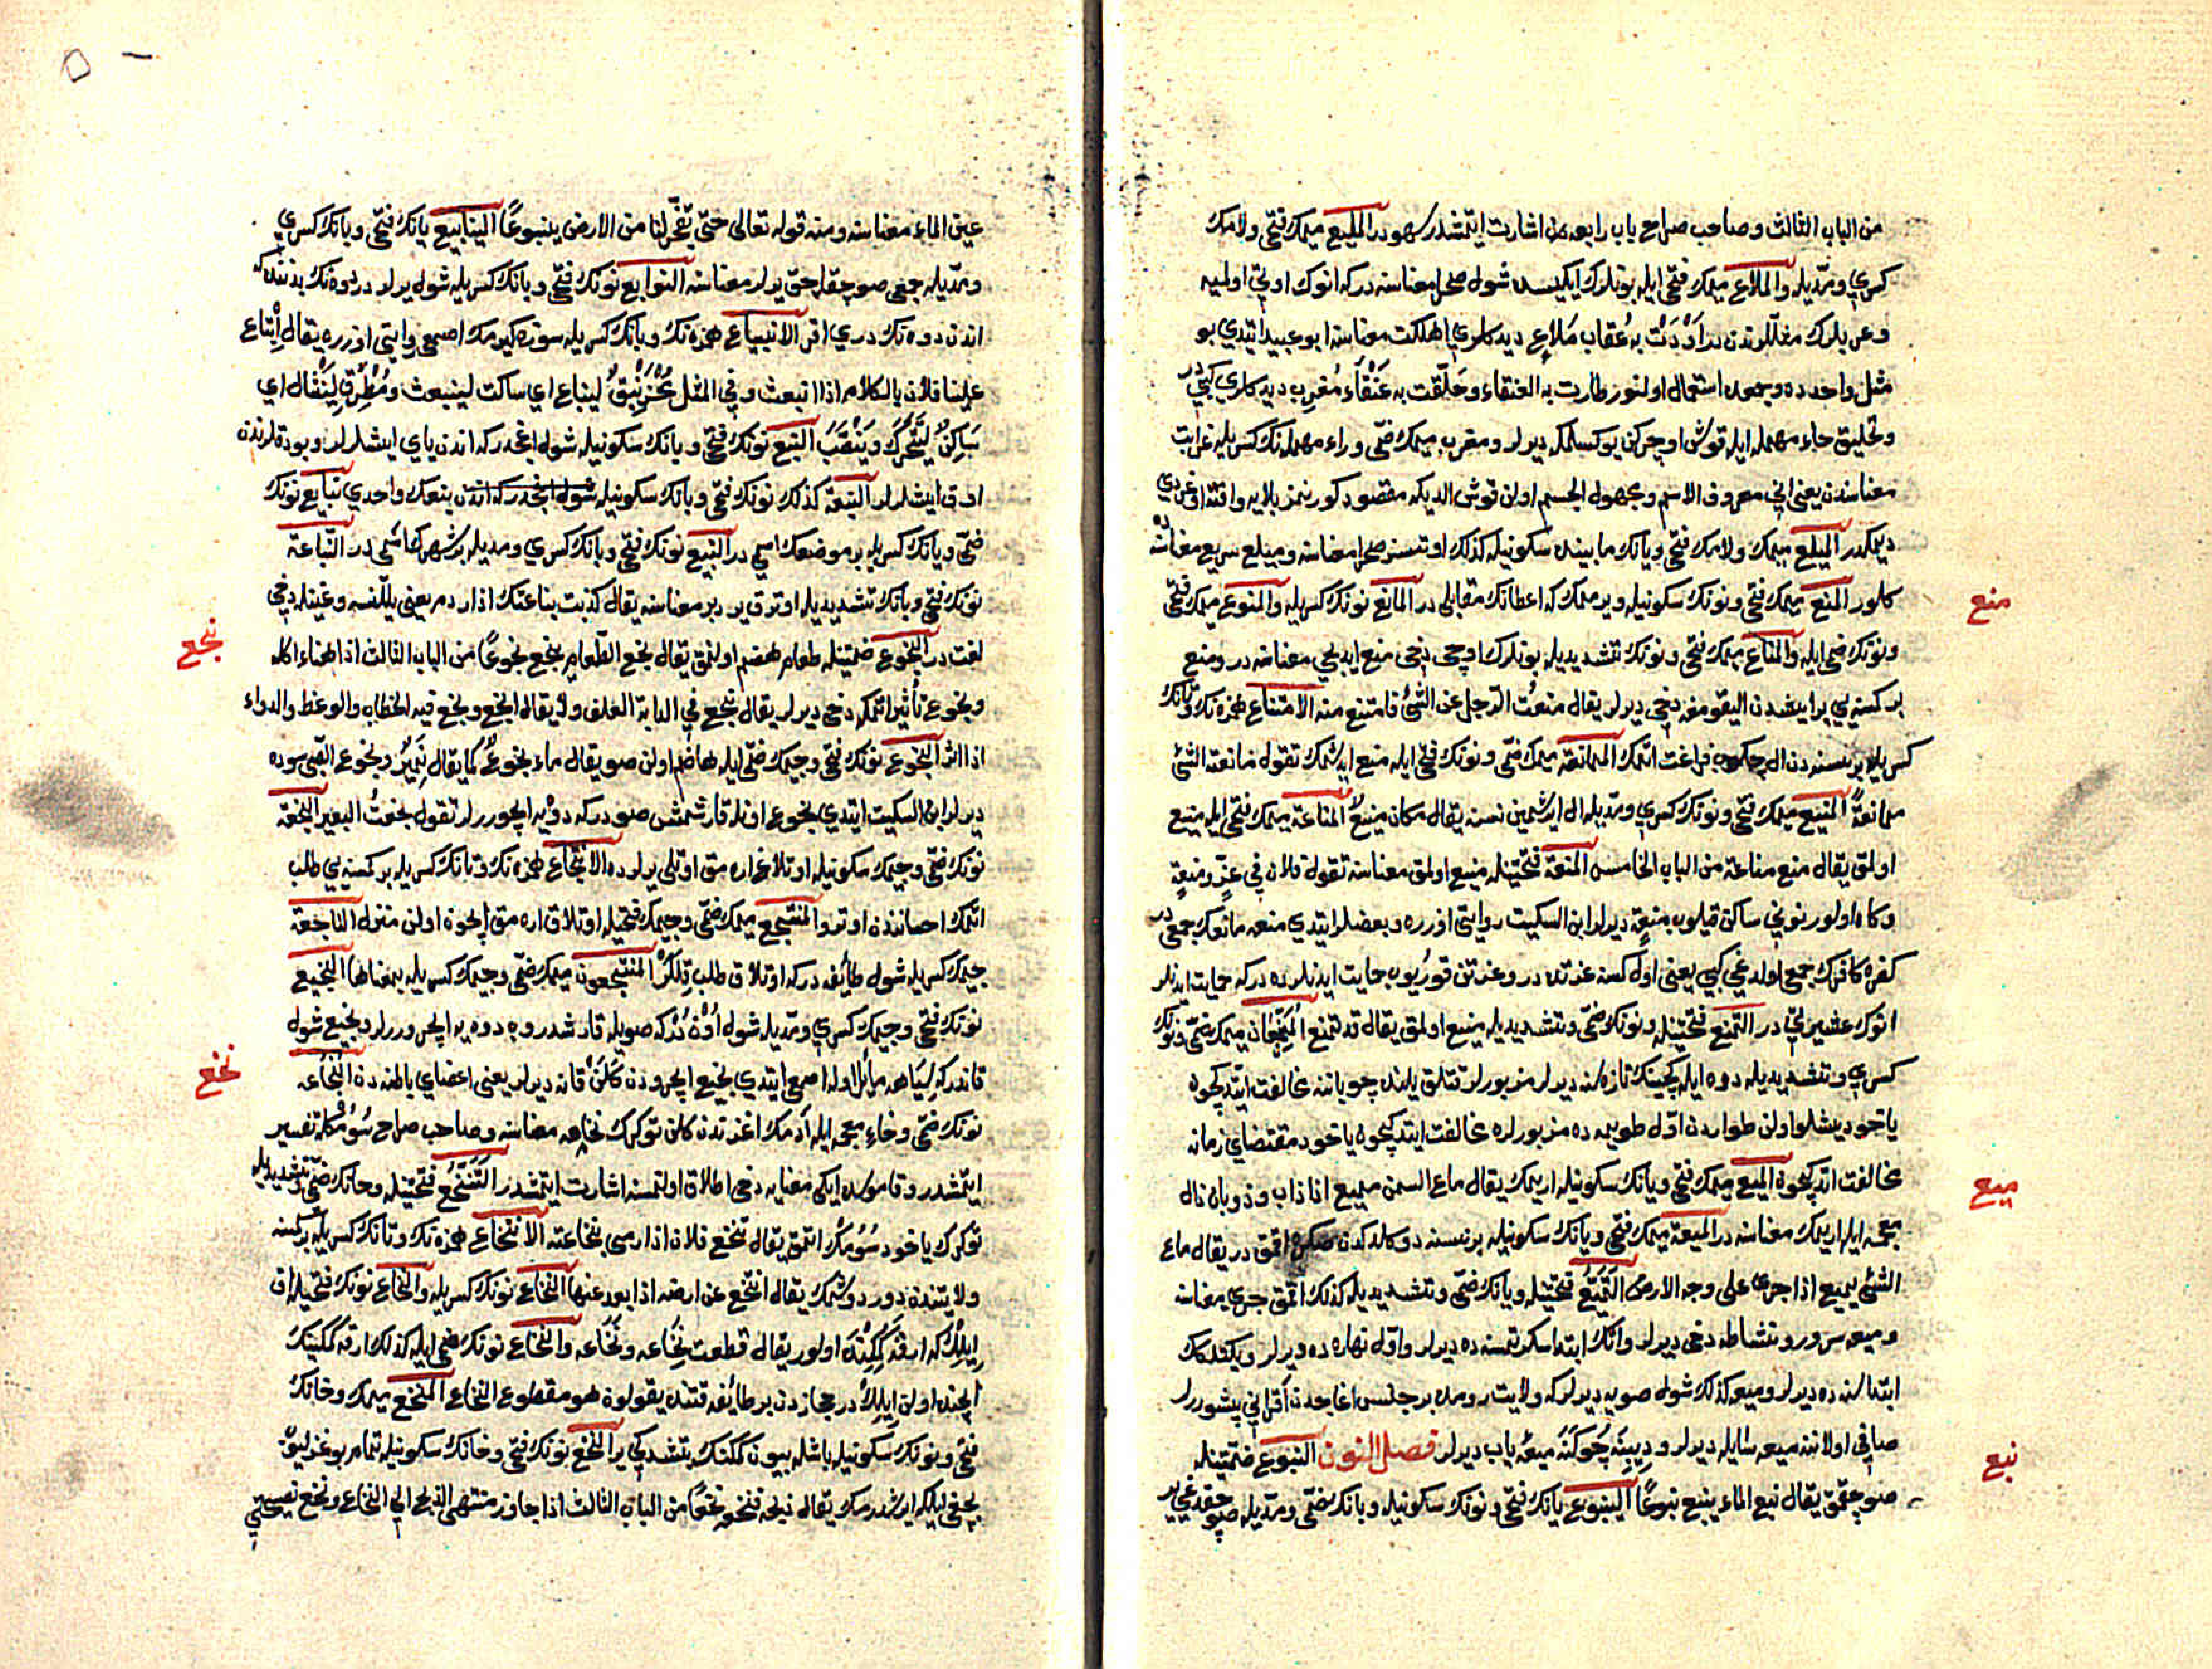 من الباب الثالث وصاحب صراح باب رابعدن اشارت ايتمشدر سهودر المليع ميمك فتحى ولامك
كسرى ومدّيله والملاع ميمك فتحى ايله بونلرك ايكيسده شول صحرا معناسنه دركه انوك اوتى اولميه
وعربلرك مثللرندن در اَوْدَتْ به عُقاب مَلاعِ ديدكلرى اهلكت معناسنه ابو عبيد ايتدى بو
مثل واحدده وجمعده استعمال اولنور طارت به العنقاء وحَلّقت به عَنْقَاءُ مُغرِب ديدكلرى كبيدر
وتحليق حاء مهمله ايله قوش اوچركن يوكسلمكه ديرلر ومغرب ميمك ضمّى وراء مهمله نك كسريله غرابت
معناسندن يعنى انى معروف الاسم ومجهول الجسم اولن قوش الديكه مقصود كورنمز بلايه وافتنه اوغردى
ديمكدر الميلع ميمك ولامك فتحى ويانك مابينده سكونيله كذلك اوتسز صحرا معناسنه وميلع سريع معناسنده
كلور المنع ميمك فتحى ونونك سكونيله ويرممك كه اعطانك مقابلى در المانع نونك كسريله والمنوع ميمك فتحى
ونونك ضمى ايله والمناع ميمك فتحى ونونك تشديديله بونلرك اوچى دخى منع ايديجى معناسنه در ومنع
بر كمسنه يى بر ايشدن اليقومغه دخى ديرلر يقال منعتُ الرّجل عن الشئ فامتنع منه الامتناع همزه نك وتانك
كسريله بر نسنه دن ال چكوب فراغت اتمك الممانعة ميمك ضمّى ونونك فتحى ايله منع ايدشمك تقول مانعته الشئ
ممانعةً المنيع ميمك فتحى ونونك كسرى ومدّيله ال ايرشمين نسنه يقال مكان منيعٌ المناعة ميمك فتحى ايله منيع
اولمق يقال منع مناعة من الباب الخامس المنعة فتحتينله منيع اولمق معناسنه تقول فلان فى عزٍّ ومنعةٍ
وكاه اولور نونى ساكن قيلوب منعةٍ ديرلر ابن السكيت روايتى اوزره وبعضلر ايتدى منعه مانعك جمعى در
كفره كافرك جمعى اولدغى كبى يعنى اول كمسنه عزتده در وعزتن قوريوب حمايت ايدنلرده دركه حمايت ايدنلر
انوك عشيرتى در التمنع فتحتينله ونونك ضمّى وتشديديله منيع اولمق يقال قد تمنع المُتمنِّعان ميمك ضمّى ونونك
كسرى وتشديديله دوه ايله كچينك تازه سنه ديرلر
ياخود
مخالفت اتدكچوه الميع ميمك فتحى ويانك سكونيله اريمك يقال ماع السمن يميع اذا ذاب وذوبان ذال
معجمه ايله اريمك معناسنه در الميعة ميمك فتحى ويانك سكونيله بر نسنه دوكلدكدن صكره اقمق در يقال ماع
الشئ يميع اذا جرى على وجه الارض التميّع فتحتينله ويانك ضمّى وتشديديله كذلك اقمق جرى معناسنه
وميعه سرور ونشاطه دخى ديرلر واتك ابتدا سكرتمسنه ده ديرلر واوّل نهاره ده ديرلر ويكتلكك
ابتداسنه ده ديرلر وميعه كذلك شول صويه ديرلر كه ولايت رومده بر جنس اغاجدن اقر انى پيشوررلر
صافى اولاننه ميعه سايله ديرلر و ميعهٔ يابسه ديرلر فصل النون النبوع ضمّتينله
صو چقمق يقال نبع الماء ينبع نبوعًا الينبوع يانك فتحى ونونك سكونيله وبانك ضمّى ومدّيله صو چقدغى ير
منع
ميع
نبع
عين الماء معناسنه ومنه قوله تعالى حتّى تفجّر لنا من الارض ينبوعًا الينابيع يانك فتحى وبانك كسرى
ومدّيله جمعى صو چقاجق يرلر معناسنه النوابع نونك فتحى وبانك كسريله شول يرلر در دوه نك بدننده كه
اندن دوه نك درى اقر الانبياع همزه نك وبانك كسريله سوزه كيرمك اصمعى روايتى اوزره يقال اِنْباع
علينا فلان بالكلام اذا انبعث وفى المثل مُخْرَنْبِقٌ لينباع اى ساكت لينبعث ومُطْرِق لِينْثال اى
سَاكِنٌ لِيَتَحَرَّكَ ويَنْصَبَّ النبع نونك فتحى وبانك سكونيله شول اغجدركه اندن ياى ايشلرلر وبوداقلرندن
اوق ايشلرلر النبعة كذلك نونك فتحى وبانك سكونيله شول اغجدركه اندن ينبعك واحدى نبايع نونك
ضمّى وبانك كسريله بر موضعك اسمى در النبيع نونك فتحى وبانك كسرى ومديله بر شهرك اسمى در النّباعة
نونك فتحى وبانك تشديديله اوترق يرى دبر معناسنه يقال كذبت نباعتك اذا ردم يعنى يللنسه وغينله دخى
لغت در النجوع ضمّتينله طعام هضم اولنمق يقال نجع الطّعام ينجع نجوعًا من الباب الثالث اذا هناء اكله
ونجوع تأثير اتمكه دخى ديرلر يقال نجع فى الدابة العلف ولا يقال انجع ونجع فيه الخطاب والوعظ والدواء
اذا اثر النجوع نونك فتحى وجيمك ضمّى ايله هاضم اولن صو يقال ماء نجوعٌ كما يقال نَمِيرٌ ونجوع الصّبى سوده
ديرلر ابن السكيت ايتدى نجوع اونله قارشمش صو دركه دوه يه ايچوررلر تقول نجعتُ البعير النجعة
نونك ضمّى وجيمك سكونيله اوتلاغ ارامق اوتلى يرلرده الانتجاع همزه نك وتانك كسريله بر كمسنه يى طلب
اتمك احسانندن اوترو المنتجع ميمك ضمّى وجيمك فتحيله اوتلاق ارامق ايچون اولن منزل الناجعة
جيمك كسريله شول طائفه دركه اوتلاق طلب قِلَلَرْ المنتجعون ميمك ضمّى وجيمك كسريله بمعناها النجيع
نونك فتحى وجيمك كسرى ومدّيله شول اُوْن دُركه صويله قارشدروب دوه يه ايچررلر ونجيع شول
قاندركه سِيَاهه مائل اوله اصمعى ايتدى نجيع ايچروده كَلَنْ قانه ديرلر يعنى اعضاى باطنه دن النّخاعه
نونك ضمّى وخاء معجمه ايله آدمك اغزندن كلن توكرك نخامه معناسنه وصاحب صراح سُوْمُكله تفسير
ايتمشدر وقاموسده ايكى معنايه دخى اطلاق اولنمسنه اشارت ايتمشدر التَنَخُّعُ فتحتينله وخانك ضمّى وتشديديله
توكرك ياخود سُوْمُك اتمق يقال تنخع فلان اذا رمى بنخاعته الانتخاع همزه نك وتانك كسريله بر كمسنه
ولايتندن دور دوشمك يقال انتخع عن ارضه اذا بعد عنها النخاع نونك كسريله والنخاع نونك فتحيله اق
اِيلِكْ كه ارقه كمكنده اولور يقال قطعت نِخَاعه ونَخَاعه والنخاع نونك ضمى ايله كذلك ارقه كمكينك
ايچنده اولن ايلك در حجازدن بر طائفه قتنده يقولون هو مقطوع النخاع المنخع ميمك وخانك
فتحى ونونك سكونيله باشله بيون كمكنك بتشدكى ير النخع نونك فتحى وخانك سكونيله تمام بوغزليوب
بچغى ايلكه ايرشدرمك يقال ذبحه فنخعه نخعًا من الباب الثالث اذا جاوز منتهى الذبح الى النخاع ونخع نصيحتى
نجع
نخع